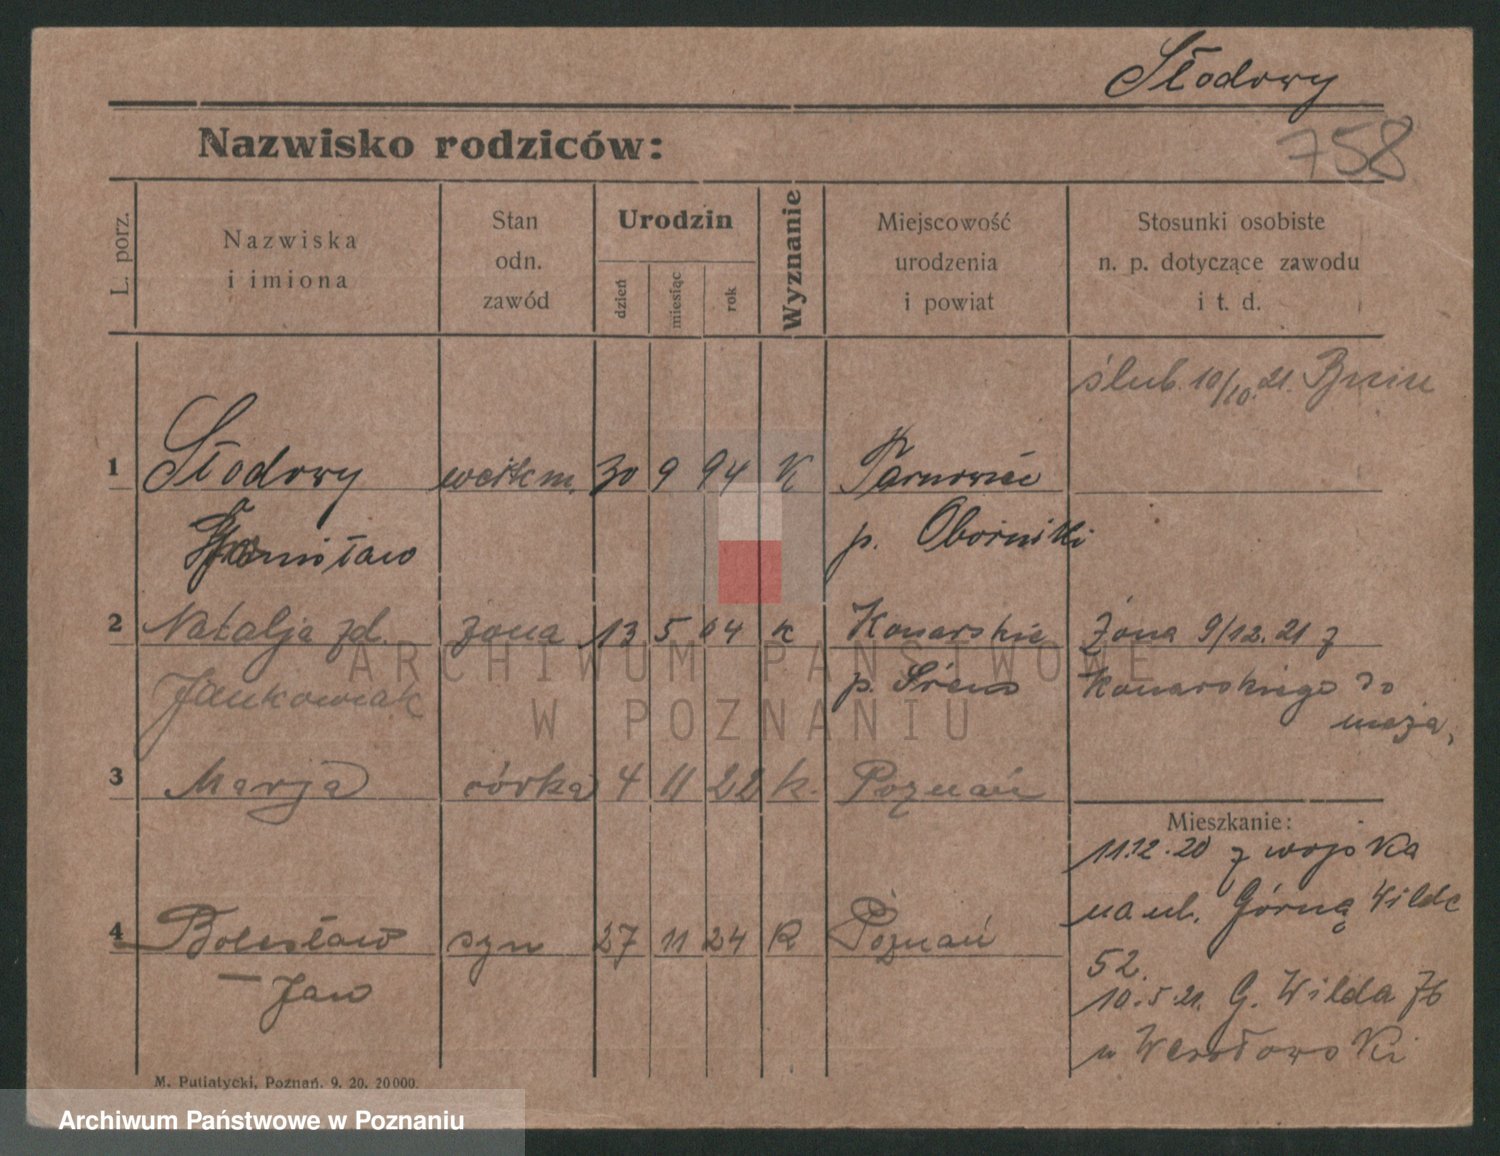 Słodowy
758
Nazwisko rodziców:
L. porz.
Nazwiska
i imiona
Stan
odn.
zawód
Urodzin
dzień
miesiąc
rok
Wyznanie
Miejscowość
urodzenia
i powiat
Stosunki osobiste
n. p. dotyczące zawodu
i t. d.
ślub. 10/10. 21. Bninie
1 Słodowy 30 9 94 K
p. Oborniki
2 Natalja zd. żona 13 5 04 k Konarskie Żona 9/12. 21 z
Jankowiak p. Śrem Konarskiego do
męża,
3 Marja córka 4 11 22 k. Poznań
Mieszkanie:
11.12.20 z wojska
na ul. Górną Wildę
4 Bolesław syn 27 11 24 k Poznań
52.
— Jan
10.5.21. G. Wilda 76
u Wesołowski
M. Putiatycki, Poznań. 9. 20. 20000.
ARCHIWUM PAŃSTWOWE
W POZNANIU
Archiwum Państwowe w Poznaniu